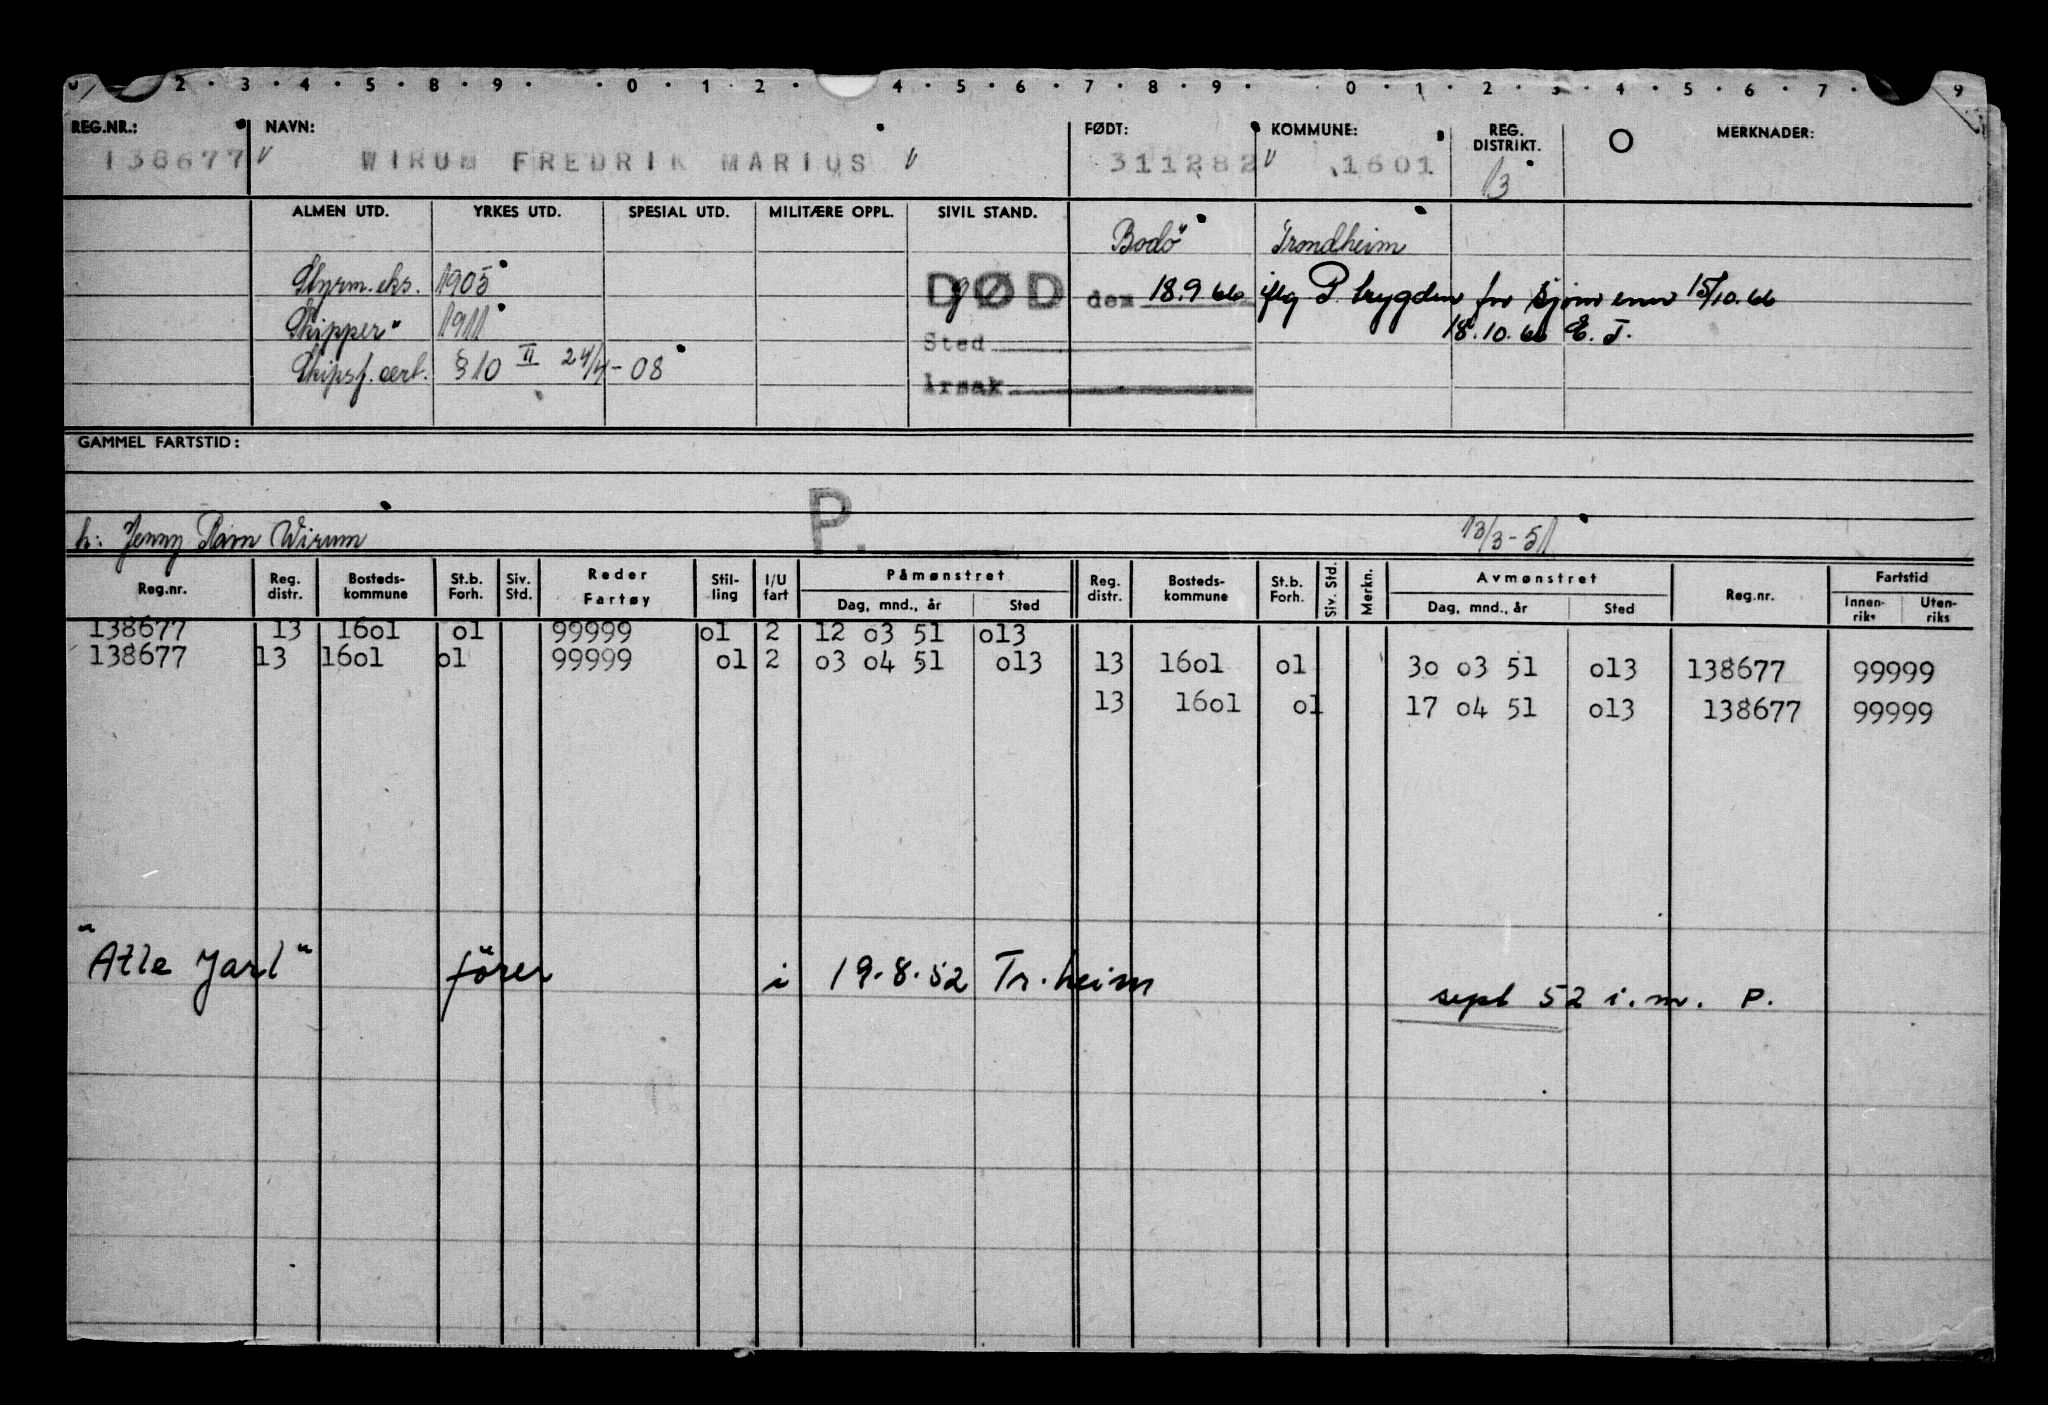 2 · 3 · 4 · 5 · 8 · 9 · · 0 · 1 · 2 · 4 · 5 · 6 · 7 · 8 · 9 · · 0 · 1 · 2 · 3 · 4 · 5 · 6 · 7 · 9
REG.NR.: NAVN: FØDT: KOMMUNE: REG. DISTRIKT. MERKNADER:
138677 WIRUM FREDRIK MARIUS 311282 1601 13
ALMEN UTD. YRKES UTD. SPESIAL UTD. MILITÆRE OPPL. SIVIL STAND.
Bodö Trondheim
Styrm.eks. 1905 g DØD den 18.9.66 iflg P. trygden for sjömenn 15/10.66
Skipper" 1911 18.10.66 E.T.
Sted
Skipsf.cert. §10 II 24/4-08
Årsak
GAMMEL FARTSTID:
P.
h: Jenny Ram Wirum 13/3-51
Reg.nr. Reg. distr. Bosteds-kommune St.b. Forh. Siv. Std. Reder Fartøy Stil-ling I/U fart Påmønstret Dag, mnd., år Sted Reg. distr. Bosteds-kommune St.b. Forh. Siv. Std. Merkn. Avmønstret Dag, mnd., år Sted Reg.nr. Fartstid Innen-riks Uten-riks
138677 13 16o1 o1 99999 o1 2 12 o3 51 o13
138677 13 16o1 o1 99999 o1 2 o3 o4 51 o13 13 16o1 o1 3o o3 51 o13 138677 99999
13 16o1 o1 17 o4 51 o13 138677 99999
"Atle Jarl" förer i 19.8.52 Tr.heim sept 52 i.m. P.